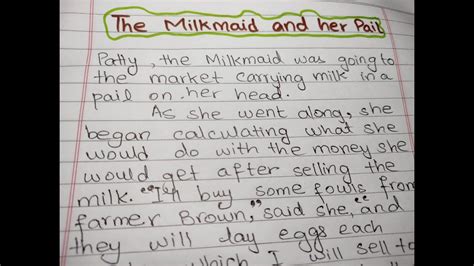 The Milkmaid and her Pail
Patty, the Milkmaid was going to
the market carrying milk in a
pail on her head.
As she went along, she
began calculating what she
would do with the money she
would get after selling the
milk. "I'll buy some fowls from
farmer Brown", said she, "and
they will lay eggs each
which I will sell to